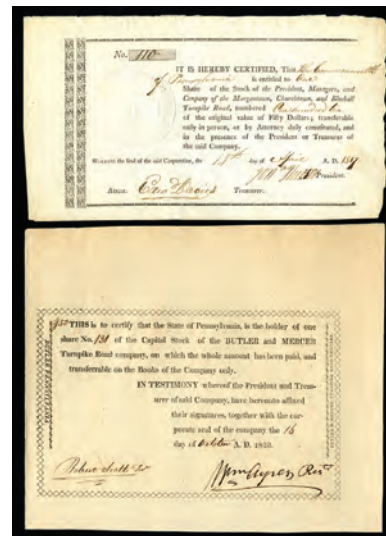 No. 110
IT IS HEREBY CERTIFIED, That the Commonwealth
of Pennsylvania is entitled to One
Share of the Stock of the President, Managers, and
Company of the Morgantown, Churchtown, and Blueball
Turnpike Road, numbered One hundred &
of the original value of Fifty Dollars; transferable
only in person, or by Attorney duly constituted, and
in the presence of the President or Treasurer of
the said Company.
WITNESS the Seal of the said Corporation, the day of April A. D. 18
President.
ATTEST. Treasurer.
THIS is to certify that the State of Pennsylvania, is the holder of one
share No. 131 of the Capital Stock of the BUTLER and MERCER
Turnpike Road company, on which the whole amount has been paid, and
transferrable on the Books of the Company only.
IN TESTIMONY whereof the President and Treas-
urer of said Company, have hereunto affixed
their signatures, together with the cor-
porate seal of the company the 18
day of October A. D. 1833.
Wm Ayres